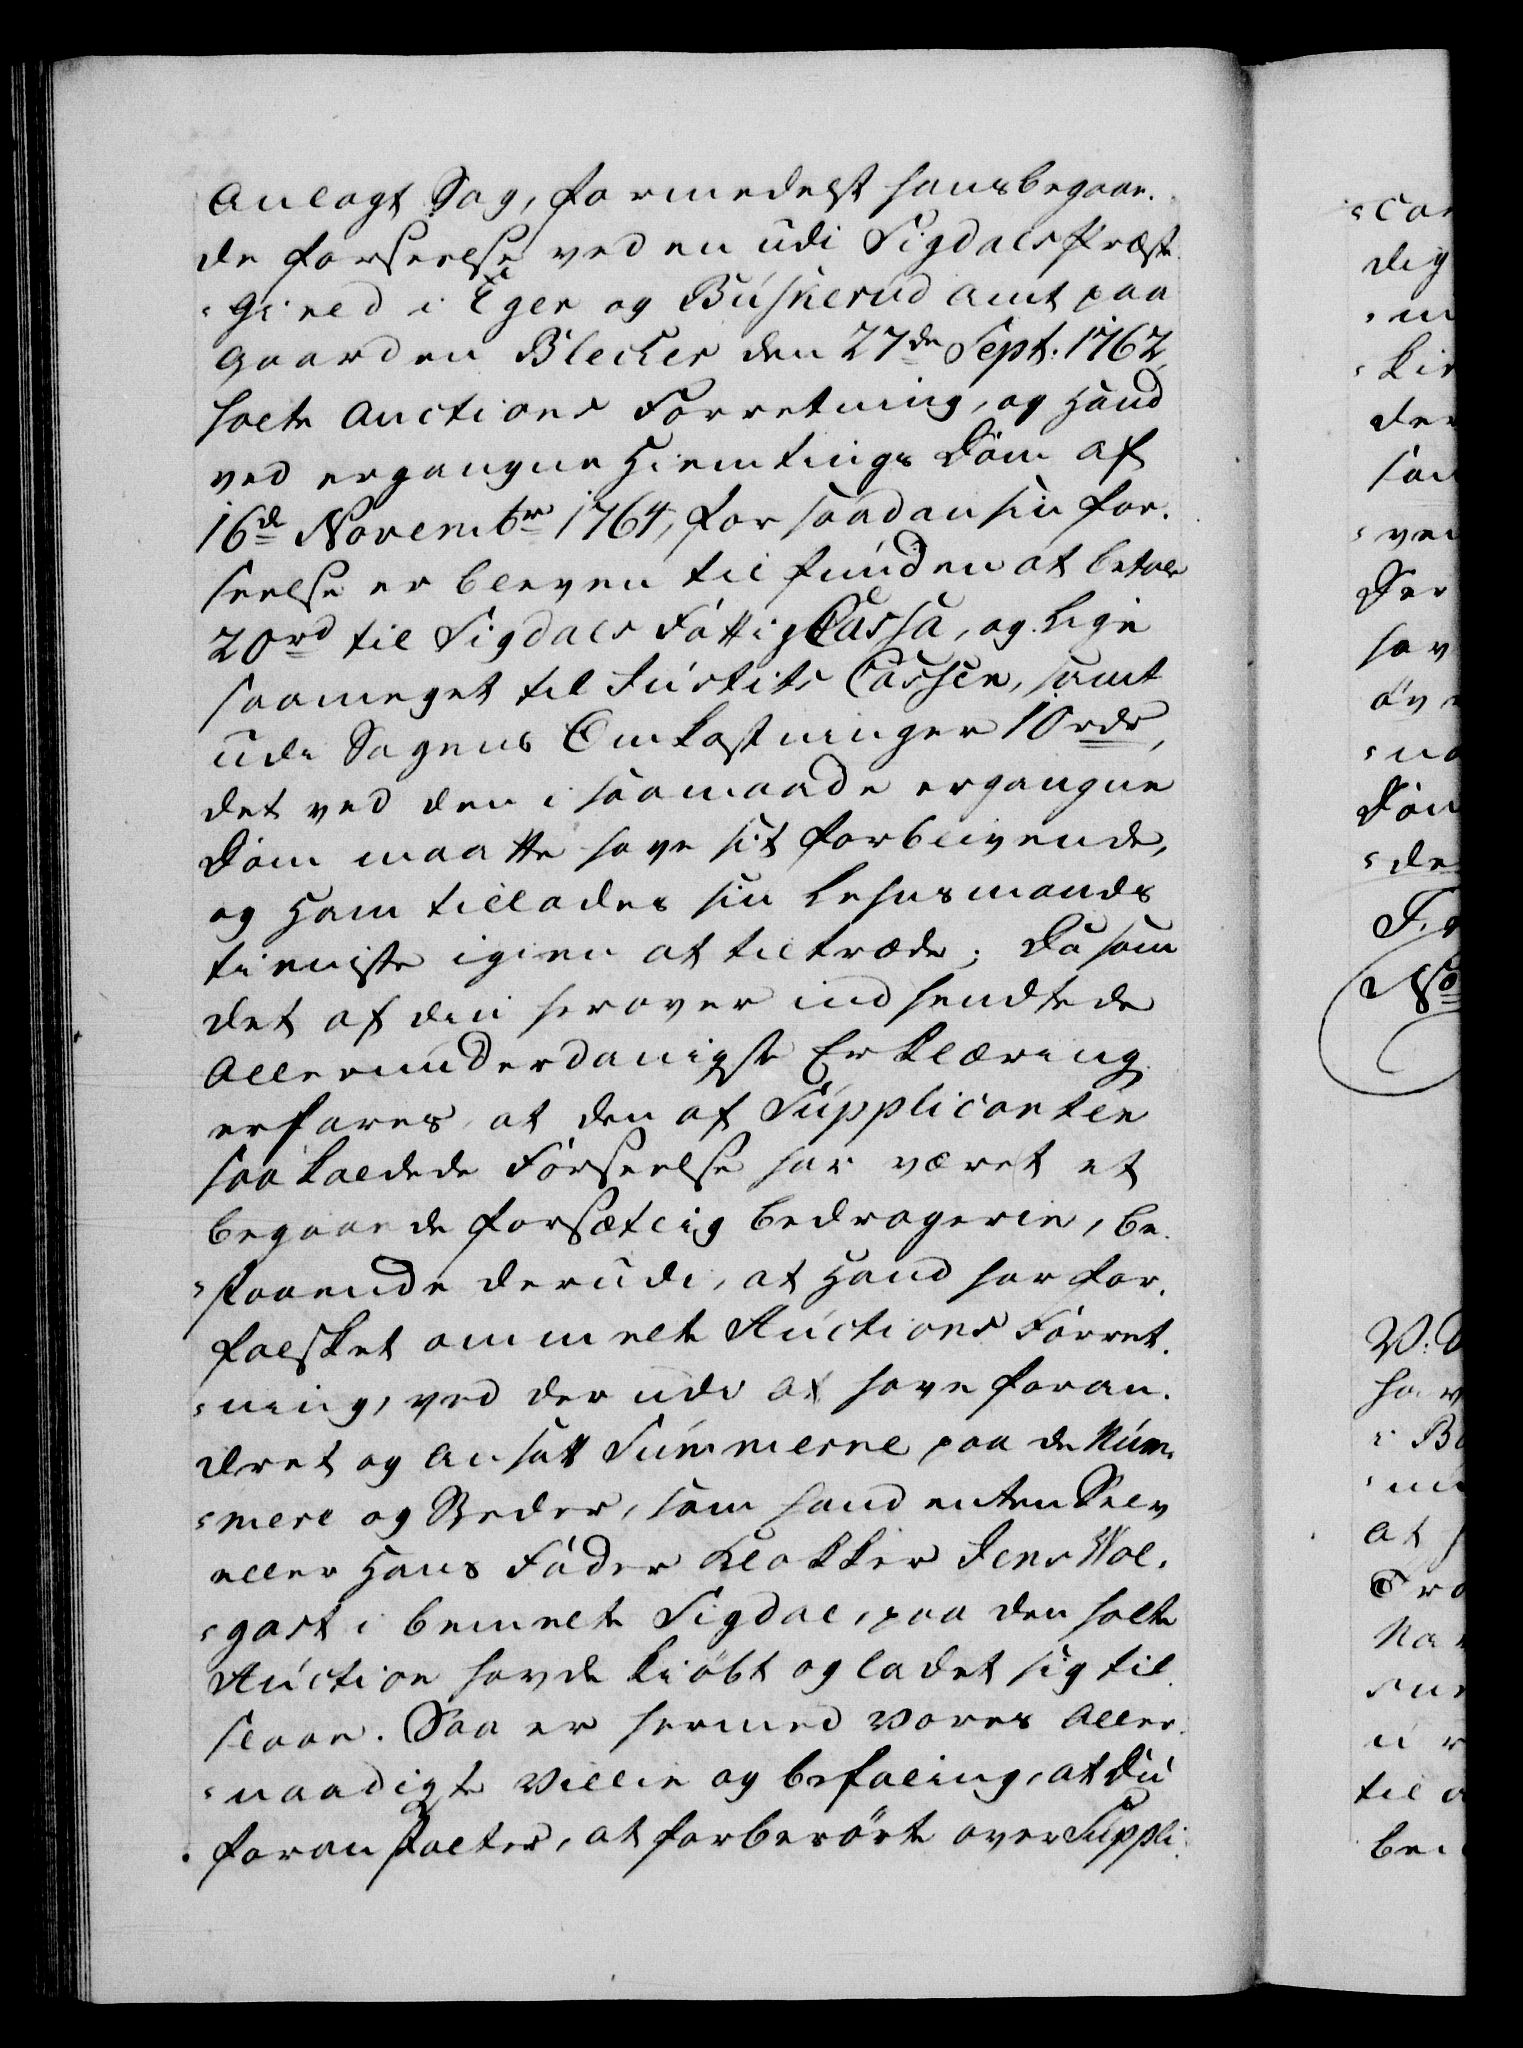 Anlagt Sag, formedelst hans begaae-
de forseelse ved en udi Sigdals Præste
-Gield i Eger og Buskerud Amt paa
Gaarden Blecker den 27de Sept: 1762
holte Auctions Forretning, og Hand
ved ergangne Hiemtings Dom af
16de Novembr 1764, for saadan sin for-
seelse er bleven tilfunden at betale
20rd til Sigdals Fattig Cassa, og lige
saameget til Justits Cassen, samt
udi Sagens Omkostninger 10rdr,
det ved den i saamaade ergangne
Dom maatte have sit forblivende,
og Ham tillades sin Lehnsmands
tieniste igien at tiltræde; Da som
det af den herover indsendte
Allerunderdanigste Erklæring
erfares, at den af Supplicanten
saa kaldede Forseelse har været et
begaaende forsætlig bedragerie, be-
-staaende derudi, at Hand har for-
falsket ommelte Auctions Forret-
-ning, ved derudi at have foran-
dret og ansatt Summerne paa de Num-
-mere og Steder, som hand enten Selv
eller Hans Fader Klokker Jens Wol-
-gast i bemelte Sigdal, paa den holte
Auction havde kiöbt og ladet sig til-
slaae. Saa er hermed Vores Aller-
-naadigste Villie og befaling, at Du
foranstalter, at forberörte over Suppli-